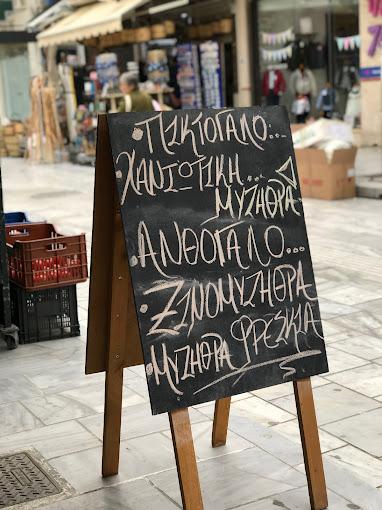 · ΠΙΚΤΟΓΑΛΟ...
· ΧΑΝΙΩΤΙΚΗ...
ΜΥΖΗΘΡΑ
· ΑΝΘΟΓΑΛΟ...
· ΞΙΝΟΜΥΖΗΘΡΑ
· ΜΥΖΗΘΡΑ ΦΡΕΣΚΙΑ